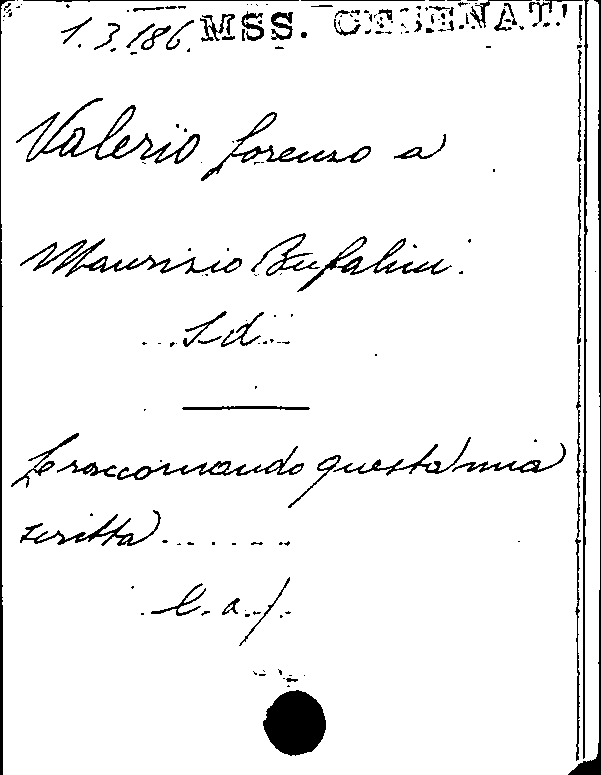 1.3.186. MSS. CESENAT.
Valerio Lorenzo a
Maurizio Bufalini.
..s.d...
Le raccomando questa mia
scritta.......
l. a. f.